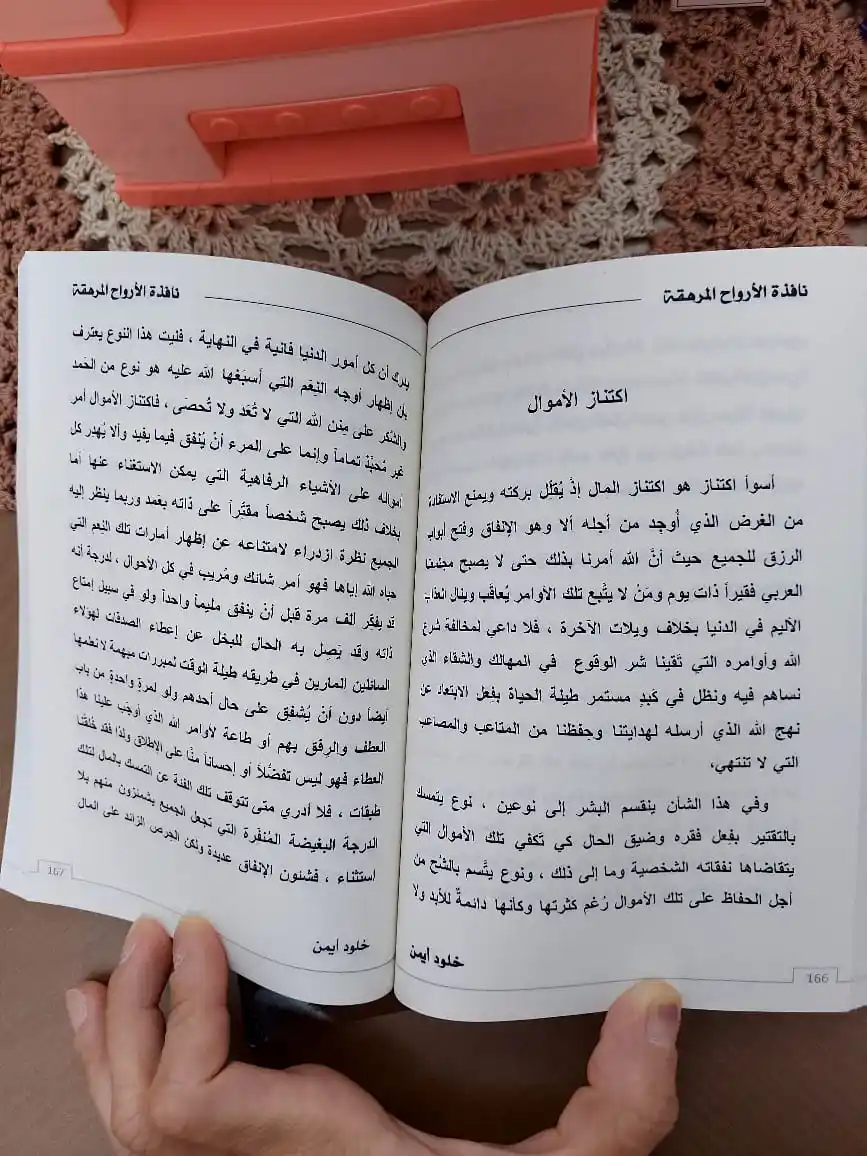 نافذة الأرواح المرهقة
اكتناز الأموال
أسوأ اكتناز هو اكتناز المال إذْ يُقلِل بركته ويمنع الاستفادة
من الغرض الذي أُوجد من أجله ألا وهو الإنفاق وفتح أبواب
الرزق للجميع حيث أنَّ الله أمرنا بذلك حتى لا يصبح مجتمعنا
العربي فقيراً ذات يوم ومَنْ لا يتَّبع تلك الأوامر يُعاقَب وينال العذاب
الأليم في الدنيا بخلاف ويلات الآخرة ، فلا داعي لمخالفة شرع
الله وأوامره التي تَقينا شر الوقوع في المهالك والشقاء الذي
نساهم فيه ونظل في كَبدٍ مستمر طيلة الحياة بفِعل الابتعاد عن
نهج الله الذي أرسله لهدايتنا وحِفظنا من المتاعب والمصاعب
التي لا تنتهي،
وفي هذا الشأن ينقسم البشر إلى نوعين ، نوع يتمسك
بالتقتير بفِعل فقره وضيق الحال كي تَكفي تلك الأموال التي
يتقاضاها نفقاته الشخصية وما إلى ذلك ، ونوع يتَّسم بالشُح من
أجل الحفاظ على تلك الأموال رُغم كثرتها وكأنها دائمةٌ للأبد ولا
خلود أيمن
166
نافذة الأرواح المرهقة
يدرك أن كل أمور الدنيا فانية في النهاية ، فليت هذا النوع يعترف
بأن إظهار أوجه النِعَم التي أسبَغها الله عليه هو نوع من الحَمد
والشُكر على مِنن الله التي لا تُعَد ولا تُحصَى ، فاكتناز الأموال أمر
غير مُحبَّذ تماماً وإنما على المرء أنْ يُنفق فيما يفيد وألا يُهدِر كل
أمواله على الأشياء الرفاهية التي يمكن الاستغناء عنها أما
بخلاف ذلك يصبح شخصاً مقتِّراً على ذاته بعَمد وربما ينظر إليه
الجميع نظرة ازدراء لامتناعه عن إظهار أمارات تلك النِعم التي
حباه الله إياها فهو أمر شائك ومُريب في كل الأحوال ، لدرجة أنه
قد يفكِّر ألف مرة قبل أنْ ينفق مليماً واحداً ولو في سبيل إمتاع
ذاته وقد يَصِل به الحال للبخل عن إعطاء الصدقات لهؤلاء
السائلين المارين في طريقه طيلة الوقت لمبررات مبهمة لا نعلمها
أيضاً دون أنْ يُشفق على حال أحدهم ولو لمرةٍ واحدةٍ من باب
العطف والرِفق بهم أو طاعة لأوامر الله الذي أوجَب علينا هذا
العطاء فهو ليس تفضُلاً أو إحساناً منَّا على الإطلاق ولذا فقد خُلقنا
طبقات ، فلا أدري متى تتوقف تلك الفئة عن التمسك بالمال لتلك
الدرجة البغيضة المُنفِّرة التي تجعل الجميع يشمئزون منهم بلا
استثناء ، فشئون الإنفاق عديدة ولكن الحِرص الزائد على المال
خلود أيمن
167